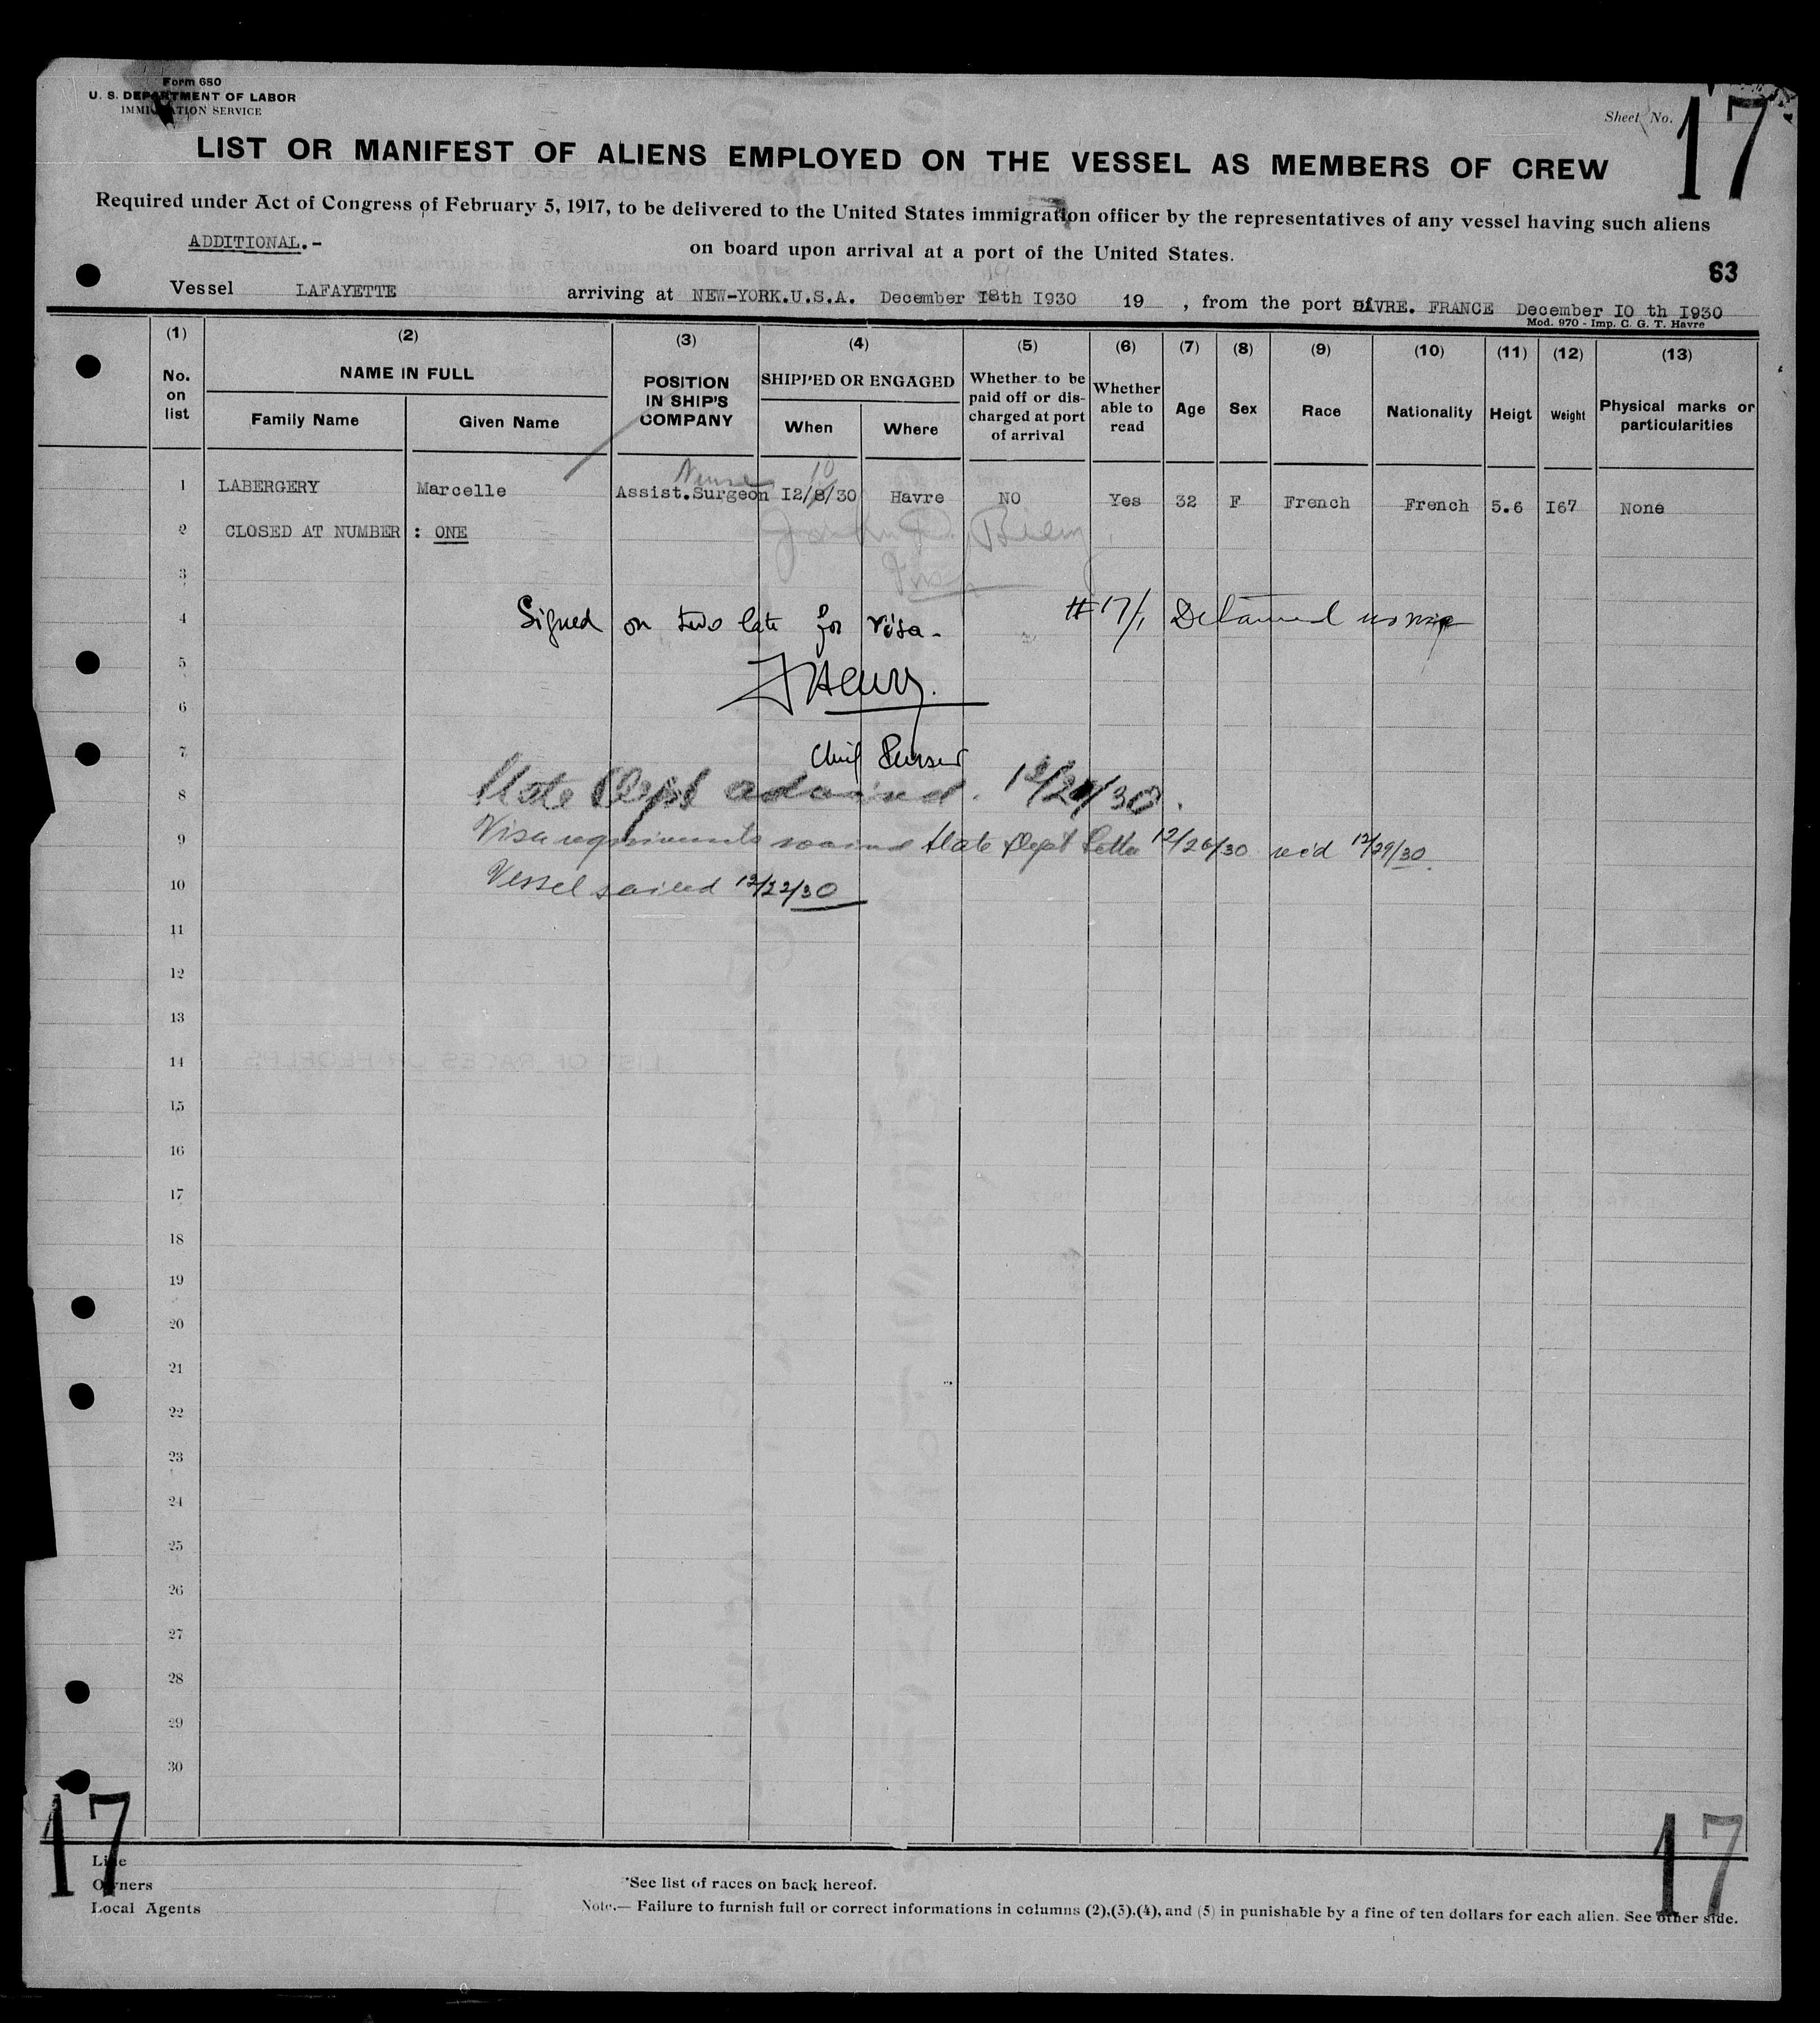 Form 680
U. S. DEPARTMENT OF LABOR
IMMIGRATION SERVICE
Sheet No. 17
LIST OR MANIFEST OF ALIENS EMPLOYED ON THE VESSEL AS MEMBERS OF CREW
Required under Act of Congress of February 5, 1917, to be delivered to the United States immigration officer by the representatives of any vessel having such aliens
ADDITIONAL.-
on board upon arrival at a port of the United States.
63
Vessel LAFAYETTE arriving at NEW-YORK.U.S.A. December 18th I930 19 , from the port of HAVRE. FRANCE December IO th I930
Mod. 970 - Imp. C. G. T. Havre
(1) (2) (3) (4) (5) (6) (7) (8) (9) (10) (11) (12) (13)
No. on list NAME IN FULL POSITION IN SHIP'S COMPANY SHIPPED OR ENGAGED Whether to be paid off or discharged at port of arrival Whether able to read Age Sex Race Nationality Heigt Weight Physical marks or particularities
Family Name Given Name When Where
Nurse 10
1 LABERGERY Marcelle Assist.Surgeon I2/8/30 Havre NO Yes 32 F French French 5.6 I67 None
2 CLOSED AT NUMBER : ONE
3
4 Signed on two late for visa. #17/1 Detained
5
6 Henry.
7 Chief Purser
8 State Dept advised.
9 Visa requirements waived State Dept Letter 12/26/30 rec'd 12/29/30.
10 Vessel sailed 12/22/30
11
12
13
14
15
16
17
18
19
20
21
22
23
24
25
26
27
28
29
30
17 17
Line
Owners
Local Agents
*See list of races on back hereof.
Note.— Failure to furnish full or correct informations in columns (2),(3),(4), and (5) in punishable by a fine of ten dollars for each alien. See other side.